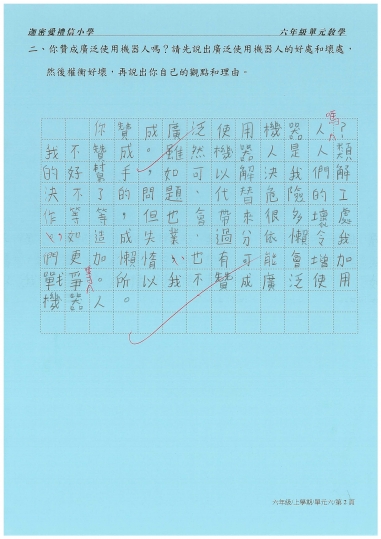 迦密愛禮信小學 六年級單元教學
二、你贊成廣泛使用機器人嗎？請先説出廣泛使用機器人的好處和壞處，
然後權衡好壞，再説出你自己的觀點和理由。
嗎
你贊成廣泛使用機器人？
我不贊成。雖然機器人是人類
的好幫手，如可以解決我們解
決不了的問題、代替危險的工
作等等，但也會帶來很多壞處
如造成失業、過分依懶令我
們更加懶惰，也有可能會增加
戰爭。所以我不贊成廣泛使用
機器人。
六年級/上學期/單元六/第2頁